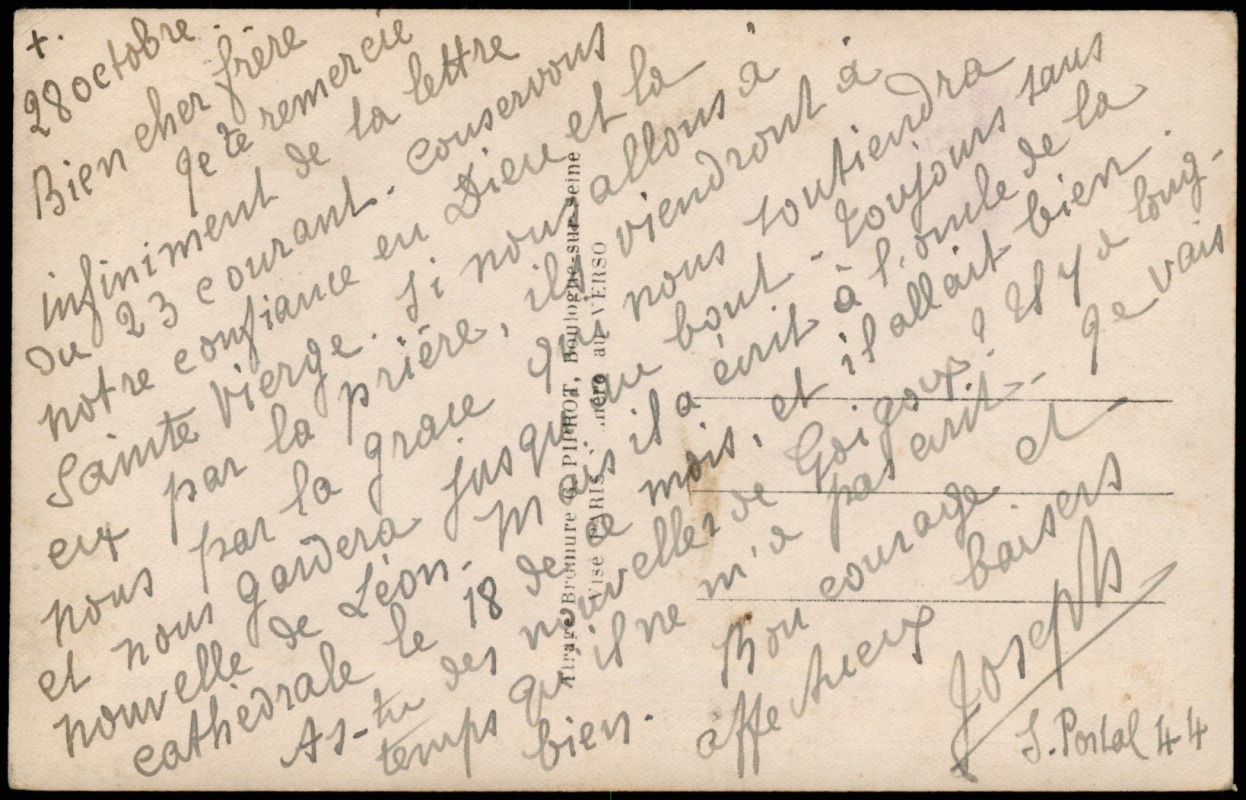 +.
28 octobre.
Bien cher frère
Je te remercie
infiniment de la lettre
du 23 courant. Conservons
notre confiance en Dieu et la
Sainte Vierge. Si nous allons à
eux par la prière, ils viendront à
nous par la grace qui nous soutiendra
et nous gardera jusqu'au bout - toujours sans
nouvelle de Léon. Mais il a écrit à l'oncle de la
cathédrale le 18 de ce mois, et il allait bien.
As-tu des nouvelles de ? Il y a long-
temps qu'il ne m'a pas écrit - Je vais
bien. Bon courage et
affectueux baisers
Joseph
S. Portal 44
Tirage Bromure G. PIPROT, Boulogne-sur-Seine
Visé PARIS, numéro au VERSO